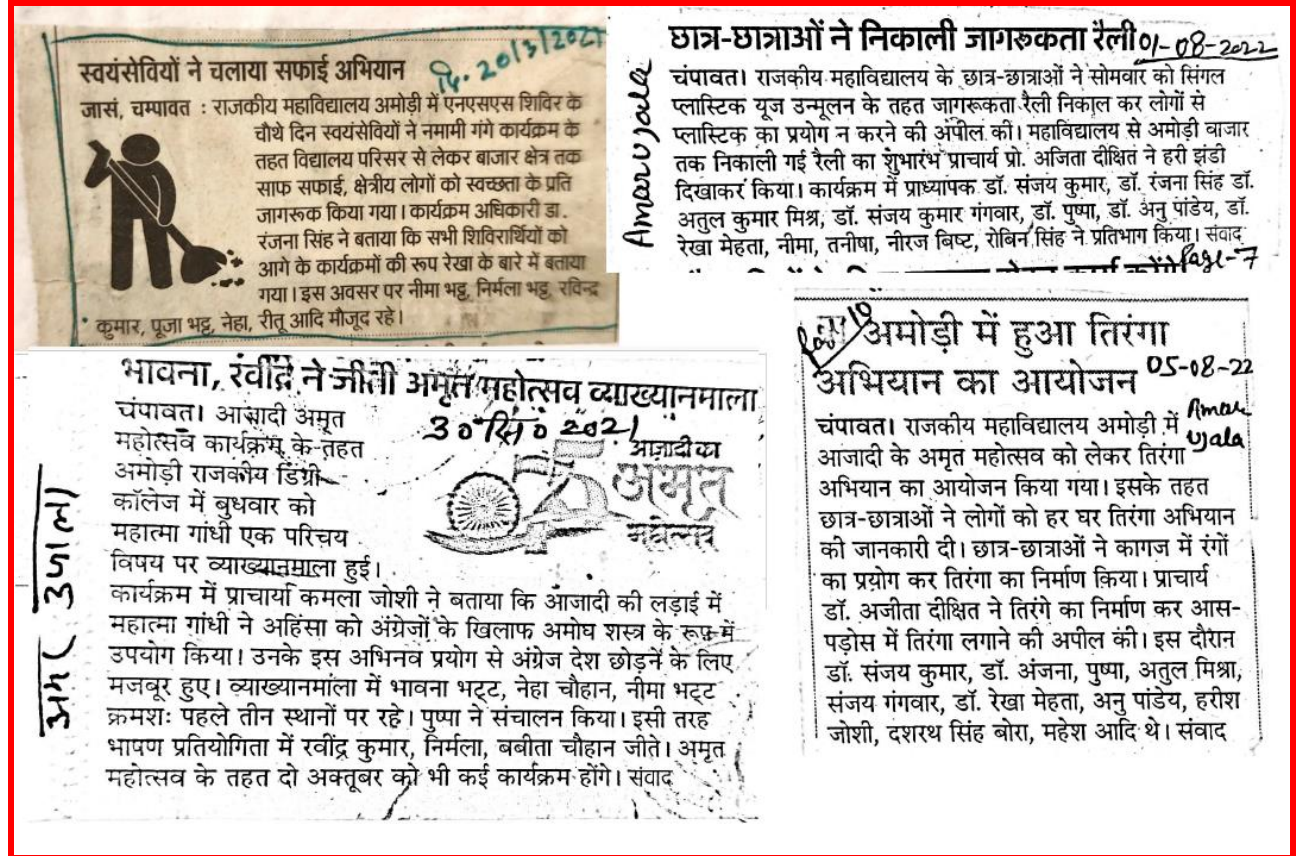 स्वयंसेवियों ने चलाया सफाई अभियान
दि. 20/3/2021
जासं, चम्पावत : राजकीय महाविद्यालय अमोड़ी में एनएसएस शिविर के
चौथे दिन स्वयंसेवियों ने नमामी गंगे कार्यक्रम के
तहत विद्यालय परिसर से लेकर बाजार क्षेत्र तक
साफ सफाई, क्षेत्रीय लोगों को स्वच्छता के प्रति
जागरूक किया गया। कार्यक्रम अधिकारी डा.
रंजना सिंह ने बताया कि सभी शिविरार्थियों को
आगे के कार्यक्रमों की रूप रेखा के बारे में बताया
गया। इस अवसर पर नीमा भट्ट, निर्मला भट्ट, रविन्द्र
कुमार, पूजा भट्ट, नेहा, रीतू आदि मौजूद रहे।
छात्र-छात्राओं ने निकाली जागरूकता रैली 01-08-2022
Amar Ujala
चंपावत। राजकीय महाविद्यालय के छात्र-छात्राओं ने सोमवार को सिंगल
प्लास्टिक यूज उन्मूलन के तहत जागरूकता रैली निकाल कर लोगों से
प्लास्टिक का प्रयोग न करने की अपील की। महाविद्यालय से अमोड़ी बाजार
तक निकाली गई रैली का शुभारंभ प्राचार्य प्रो. अजिता दीक्षित ने हरी झंडी
दिखाकर किया। कार्यक्रम में प्राध्यापक डॉ. संजय कुमार, डॉ. रंजना सिंह डॉ.
अतुल कुमार मिश्र, डॉ. संजय कुमार गंगवार, डॉ. पुष्पा, डॉ. अनु पांडेय, डॉ.
रेखा मेहता, नीमा, तनीषा, नीरज बिष्ट, रोबिन सिंह ने प्रतिभाग किया। संवाद
Page-7
भावना, रवींद्र ने जीती अमृत महोत्सव व्याख्यानमाला
30 सित0 2021
चंपावत। आजादी अमृत
महोत्सव कार्यक्रम के तहत
अमोड़ी राजकीय डिग्री
कॉलेज में बुधवार को
महात्मा गांधी एक परिचय
विषय पर व्याख्यानमाला हुई।
आज़ादी का
अमृत
महोत्सव
कार्यक्रम में प्राचार्या कमला जोशी ने बताया कि आजादी की लड़ाई में
महात्मा गांधी ने अहिंसा को अंग्रेजों के खिलाफ अमोघ शस्त्र के रूप में
उपयोग किया। उनके इस अभिनव प्रयोग से अंग्रेज देश छोड़ने के लिए
मजबूर हुए। व्याख्यानमाला में भावना भट्ट, नेहा चौहान, नीमा भट्ट
क्रमशः पहले तीन स्थानों पर रहे। पुष्पा ने संचालन किया। इसी तरह
भाषण प्रतियोगिता में रवींद्र कुमार, निर्मला, बबीता चौहान जीते। अमृत
महोत्सव के तहत दो अक्तूबर को भी कई कार्यक्रम होंगे। संवाद
अमर उजाला
अमोड़ी में हुआ तिरंगा
अभियान का आयोजन 05-08-22
Amar Ujala
चंपावत। राजकीय महाविद्यालय अमोड़ी में
आजादी के अमृत महोत्सव को लेकर तिरंगा
अभियान का आयोजन किया गया। इसके तहत
छात्र-छात्राओं ने लोगों को हर घर तिरंगा अभियान
की जानकारी दी। छात्र-छात्राओं ने कागज में रंगों
का प्रयोग कर तिरंगा का निर्माण किया। प्राचार्य
डॉ. अजीता दीक्षित ने तिरंगे का निर्माण कर आस-
पड़ोस में तिरंगा लगाने की अपील की। इस दौरान
डॉ. संजय कुमार, डॉ. अंजना, पुष्पा, अतुल मिश्रा,
संजय गंगवार, डॉ. रेखा मेहता, अनु पांडेय, हरीश
जोशी, दशरथ सिंह बोरा, महेश आदि थे। संवाद